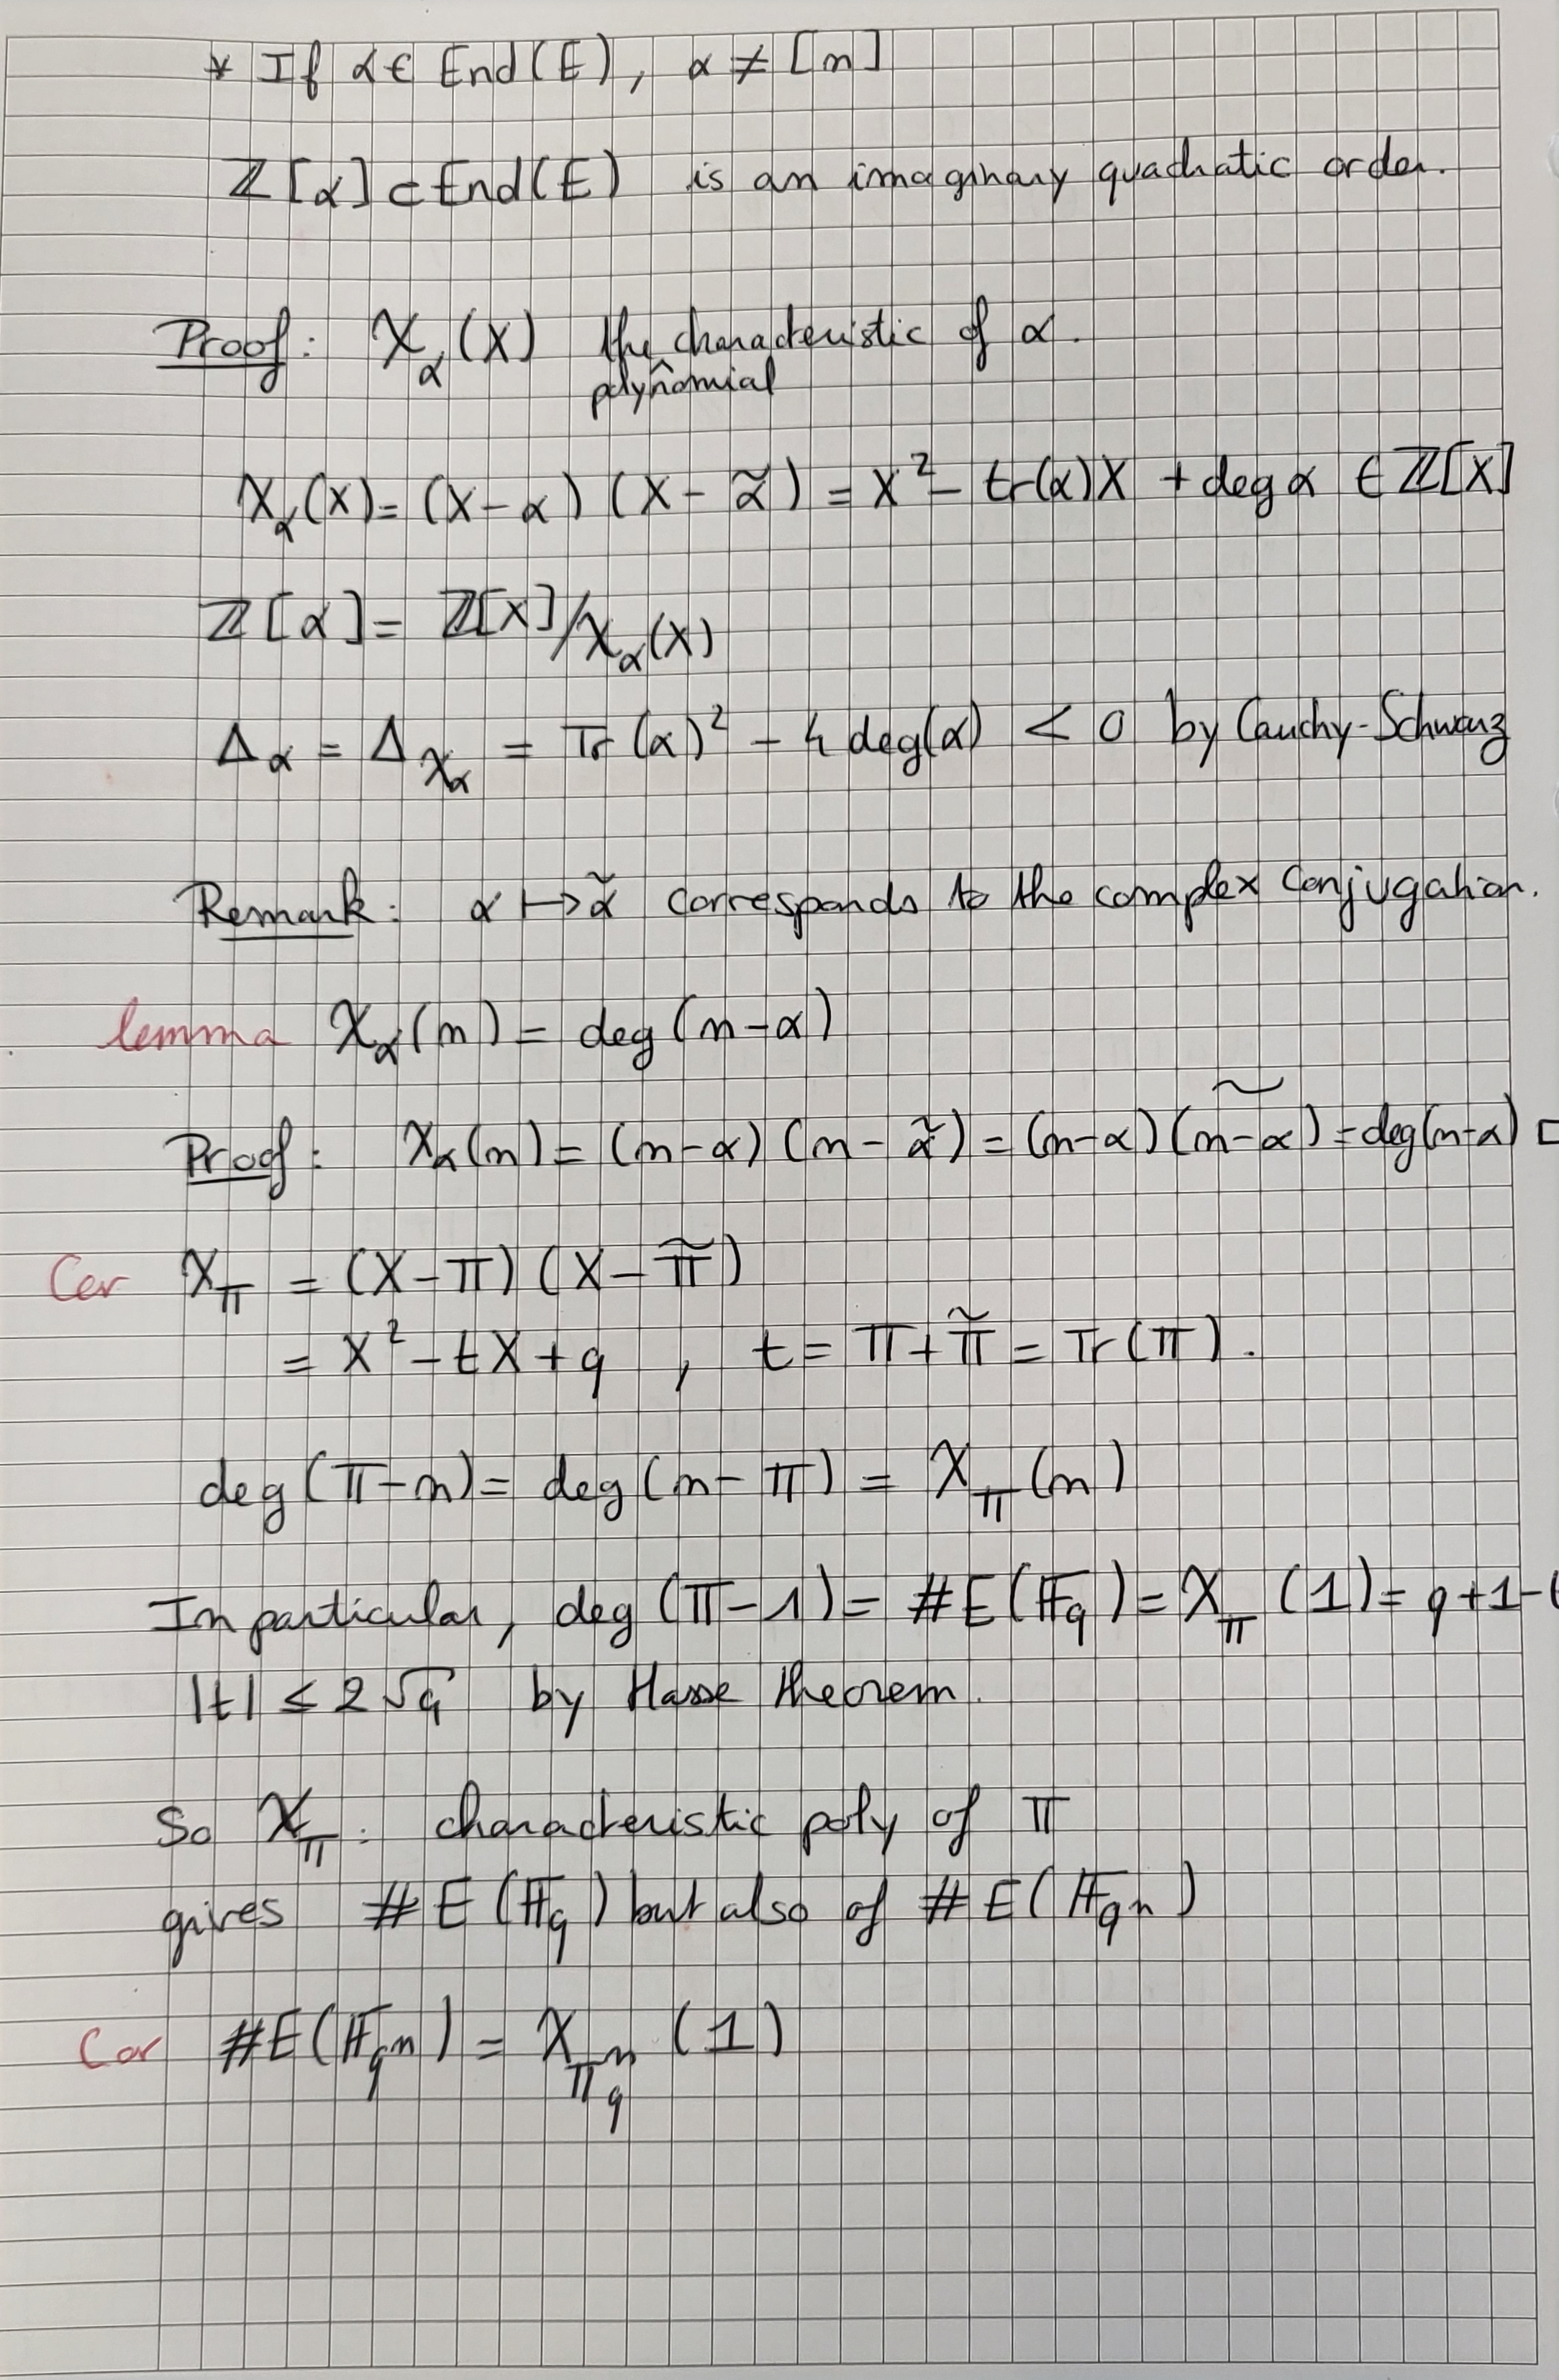 * If α ∈ End(E), α ≠ [n]
Z[α] ⊂ End(E) is an imaginary quadratic order.
Proof: χ_α(X) the characteristic of α.
polynomial
χ_α(X) = (X-α)(X-α̃) = X² - tr(α)X + deg α ∈ ℤ[X]
ℤ[α] = ℤ[X]/χ_α(X)
Δ_α = Δ_χ_α = Tr(α)² - 4 deg(α) < 0 by Cauchy-Schwarz
Remark: α ↦ α̃ corresponds to the complex conjugation.
lemma χ_α(n) = deg(n-α)
Proof: χ_α(n) = (n-α)(n-α̃) = (n-α)(n-α)~ = deg(n-α) □
Cor χ_π = (X-π)(X-π̃)
= X² - tX + q , t = π + π̃ = Tr(π).
deg(π-n) = deg(n-π) = χ_π(n)
In particular, deg(π-1) = #E(𝔽_q) = χ_π(1) = q+1-t
|t| ≤ 2√q by Hasse theorem.
So χ_π : characteristic poly of π
gives #E(𝔽_q) but also of #E(𝔽_qⁿ)
Cor #E(𝔽_qⁿ) = χ_π_qⁿ(1)